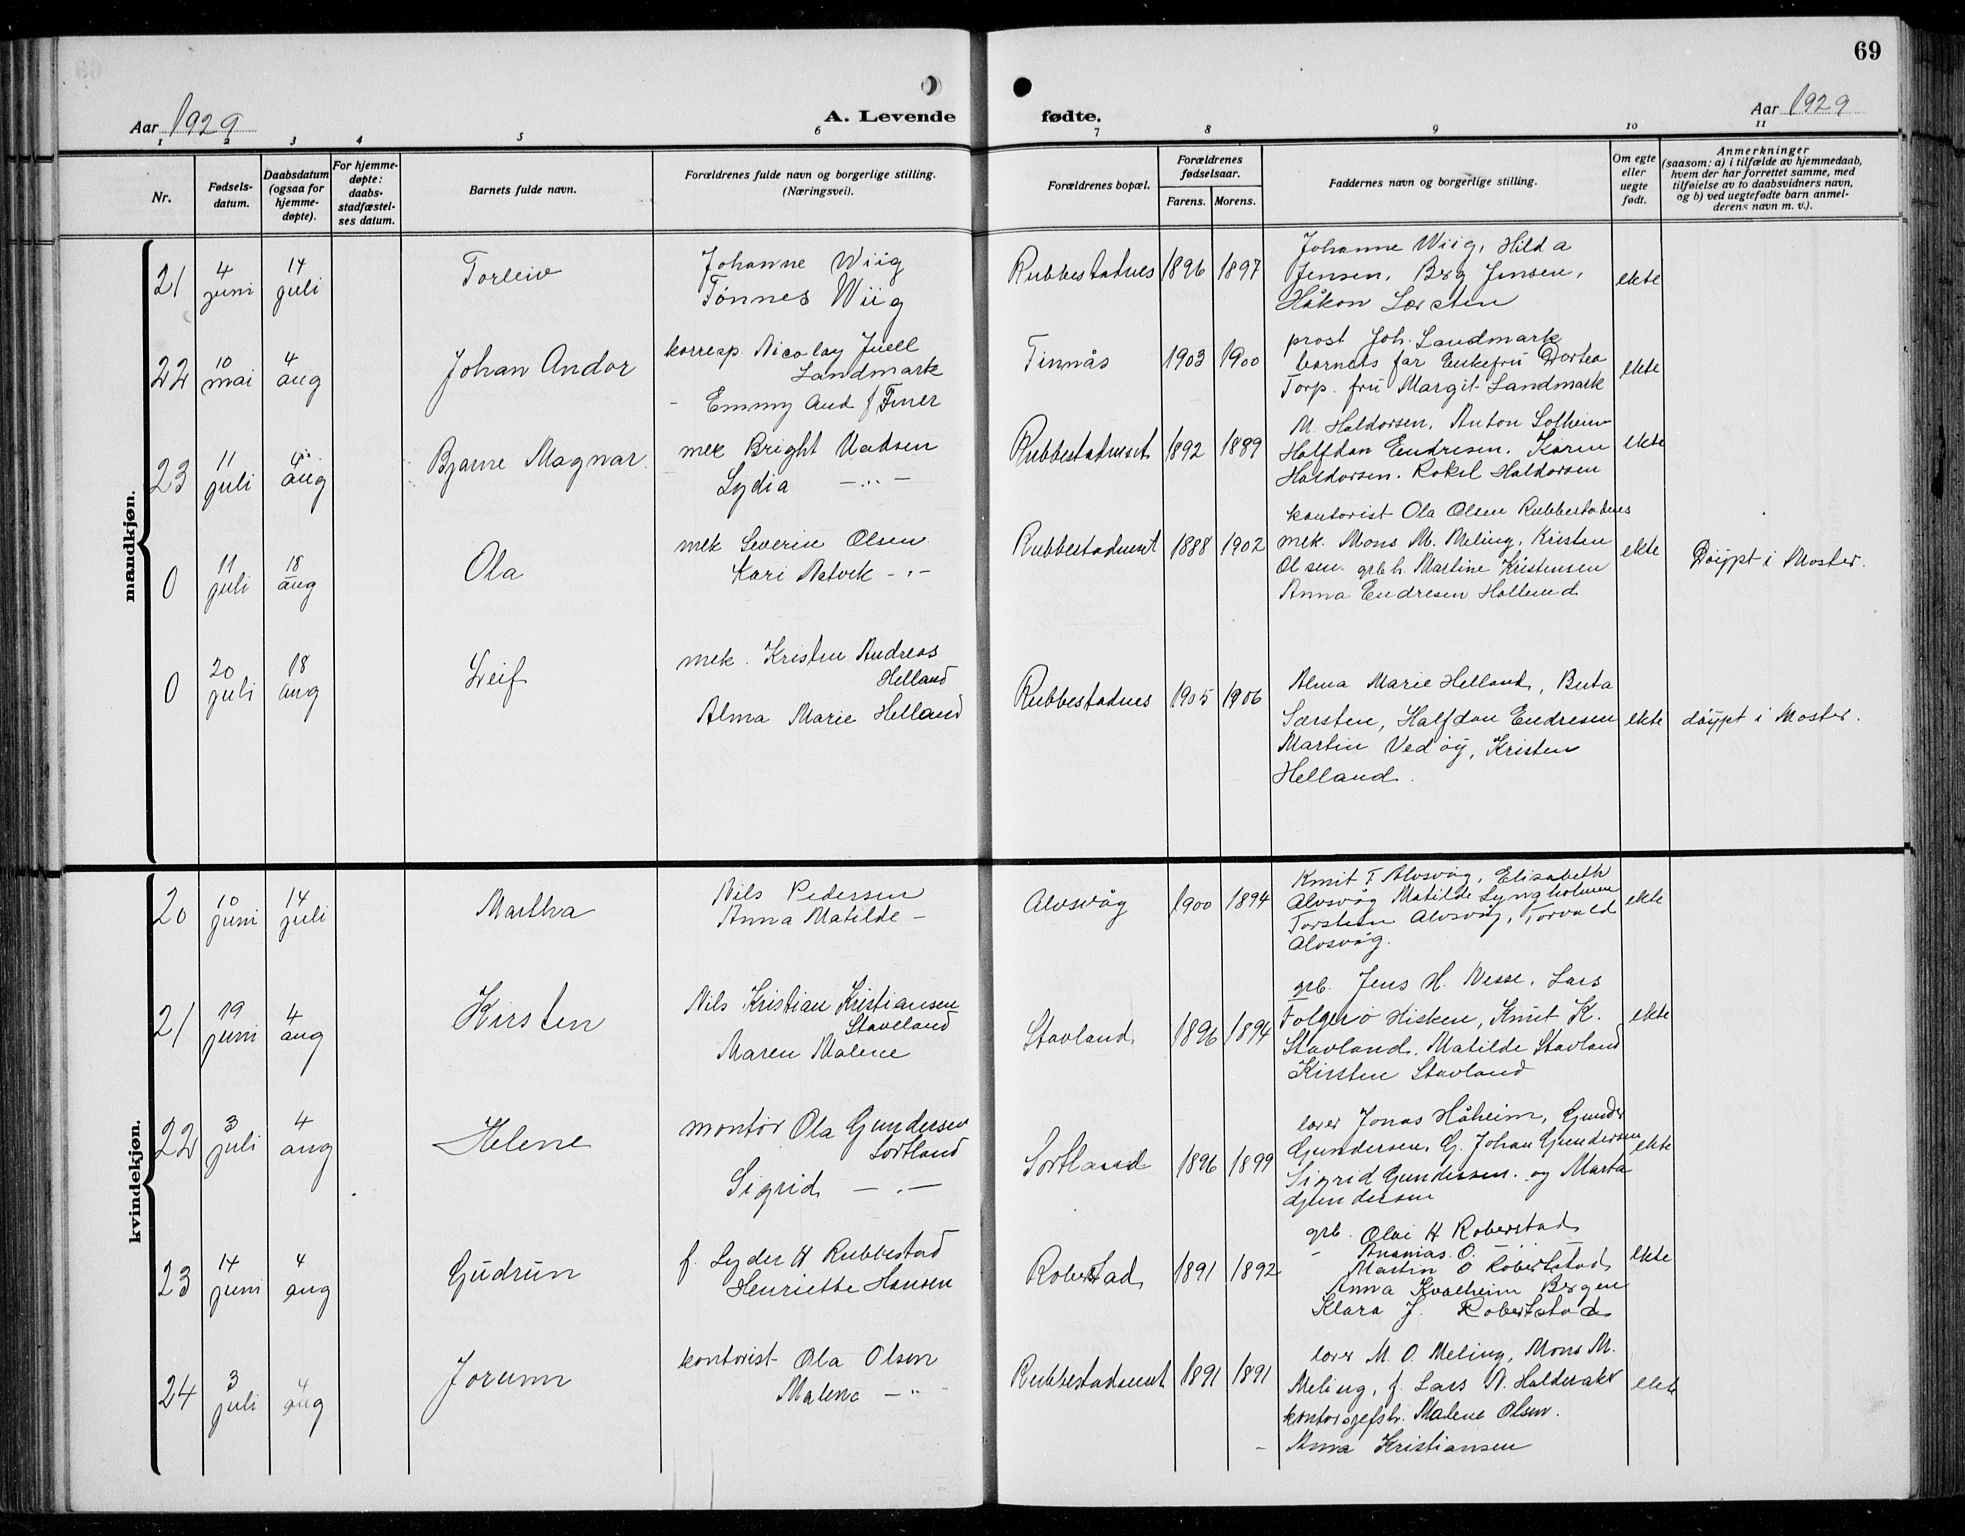 69
Aar 1929
A. Levende
fødte.
Aar 1929
1 2 3 4 5 6 7 8 9 10 11
Nr.
Fødsels-
datum.
Daabsdatum
(ogsaa for
hjemme-
døpte).
For hjemme-
døpte:
daabs-
stadfæstel-
ses datum.
Barnets fulde navn.
Forældrenes fulde navn og borgerlige stilling.
(Næringsvei).
Forældrenes bopæl.
Forældrenes
fødselsaar.
Farens. Morens.
Faddernes navn og borgerlige stilling.
Om egte
eller
uegte
født.
Anmerkninger
(saasom: a) i tilfælde av hjemmedaab,
hvem der har forrettet samme, med
tilføielse av to daabsvidners navn,
og b) ved uegtefødte barn anmel-
derens navn m. v.).
mandkjøn.
21
4
juni
14
juli
Torleiv
Johanne Wiig
Tønnes Wiig
Rubbestadnes
1896 1897
Johanne Wiig, Hilda
Jensen, Berg Jensen,
Håkon Særsten
ekte
22
10
mai
4
aug
Johan Andor
korresp. Nicolay Juell
Landmark
- Emmy Aud f
Finnås
1903 1900
prost Joh. Landmark
barnets far Enkefru Dortea
Torp. fru Margit Landmark
ekte
23
11
juli
4
aug
Bjarne Magnar.
mek Bright Madsen
Lydia - " -
Rubbestadneset
1892 1889
M. Haldorsen, Anton Solheim
Halfdan Endresen, Karen
Haldorsen. Rakel Haldorsen
ekte
0
11
juli
18
aug
Ola
mek Severin Olsen
Kari Natvik - " -
Rubbestadneset
1888 1902
kontorist Ola Olsen Rubbestadnes
mek. Mons M. Meling, Kristen
Olsen. grb.h. Martine Kristensen
Anna Endresen Hollund
ekte
Døypt i Moster.
0
20
juli
18
aug
Leif
mek. Kristen Andreas
Helland
Alma Marie Helland
Rubbestadnes
1905 1906
Alma Marie Helland, Berta
Særsten, Halfdan Endresen
Martin Vedøy, Kristen
Helland.
ekte
døypt i Moster.
kvindekjøn.
20
10
juni
14
juli
Martha
Nils Pedersen
Anna Matilde -
Alvsvåg
1900 1894
Knut T Alvsvåg, Elisabeth
Alvsvåg Matilde Lyngholmen
Torstein Alvsvåg, Torvald
Alvsvåg.
ekte
21
19
juni
4
aug
Kirsten
Nils Kristian Kristiansen
Staveland
Maren Malene
Stavland
1896 1894
grb. Jens H. Nesse, Lars
Folgerø Hisken, Knut K.
Stavland, Matilde Stavland
Kirsten Stavland
ekte
22
3
juli
4
aug
Helene
montør Ola Gundersen
Sortland
Sigrid - " -
Sortland
1896 1899
lærer Jonas Håheim, Gunder
Gundersen, G. Johan Gundersen
Sigrid Gundersen. og Marta
Gundersen
ekte
23
14
juni
4
aug
Gudrun
f. Lyder H Rubbestad
Henriette Hansen
Robestad
1891 1892
grb. Olai H Roberstad
- Ananias O. -
Martin O Robertstad
Anna Kvalheim Bergen
Klara J. Robertstad
ekte
24
3
juli
4
aug
Jorunn
kontorist Ola Olsen
Malene - " -
Rubbestadneset
1891 1891
lærer M. O. Meling, Mons M.
Meling, f. Lars A. Halderaker
kontorgefsh. Malene Olsen.
- Anna Kristiansen
ekte